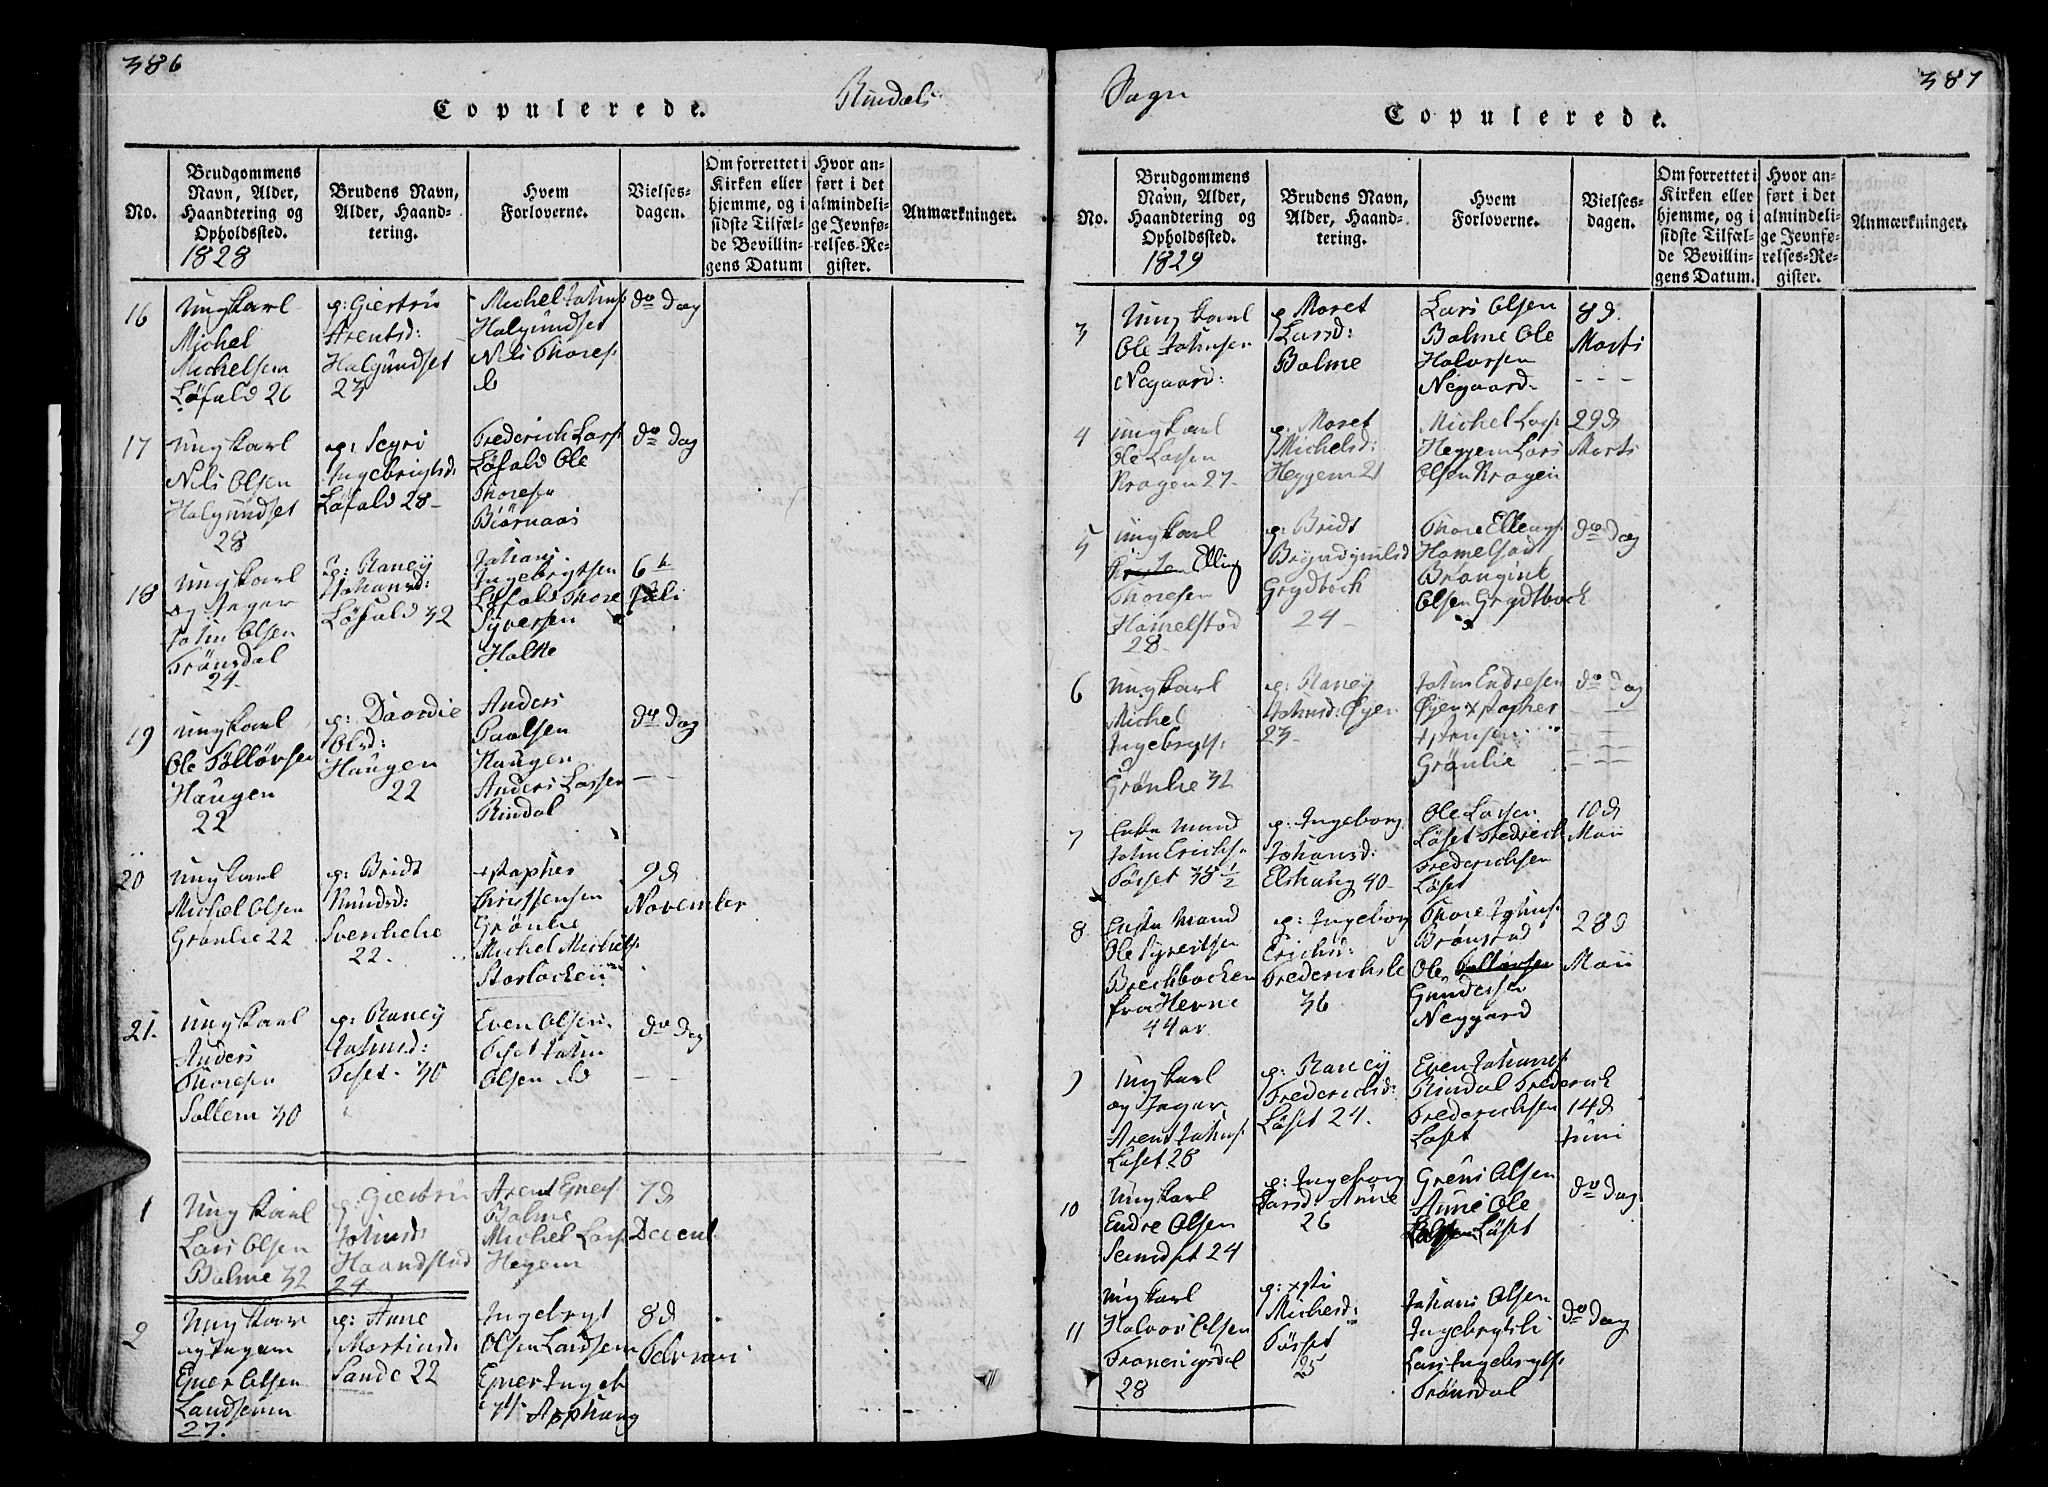 386
Copulerede.
Rindals
No.
Brudgommens
Navn, Alder,
Haandtering og
Opholdssted.
1828
Brudens Navn,
Alder, Haand-
tering.
Hvem
Forloverne.
Vielses-
dagen.
Om forrettet i
Kirken eller
hjemme, og i
sidste Tilfæl-
de Bevillin-
gens Datum
Hvor an-
ført i det
almindeli-
ge Jevnfø-
relses-Re-
gister.
Anmærkninger.
16
Ungkarl
Michel
Michelsen
Løfald 26
p: Giertru
Arentsd:
Halgundset
23
Michel Johns:
Halgundset
Nils Thores:
17
Ungkarl
Nils Olsen
Halgundset
28
p: Segri
Ingebrigtsd:
Løfald 28
Frederich Lars:
Løfald Ole
Thoresen
Biørnaas
do Dag
18
Ungkarl
og Jeger
John Olsen
Trønsdal
24
p: Raney
Johansd:
Løfald 32
Johans
Ingebrytsen
Løfald Thore
Syversen
Holte
6te
Juli
19
Ungkarl
Ole Følløvsen
Haugen
22
p: Daordie
Olsd:
Haugen
22
Anders
Paalsen
Haugen
Anders Larsen
Rindal
do Dag
20
Ungkarl
Michel Olsen
Grønlie 22
p: Bridt
Knudsd:
22
Christensen
Grønlie
Michel Michels:
9d
November
21
Ungkarl
Anders
Thoresen
Sollem 30
p: Raney
Johnsd:
Foset 30
Even Olsen
Foset John
Olsen do
do Dag
1
Ungkarl
Lars Olsen
Bolme 32
p: Giertru
Johnsd:
Haandstad
24
Arent Eners:
Bolme
Michel Lars:
Hegem
7d
Decemb:
2
Ungkarl
Ener Olsen
Landsemm
27
p: Anne
Mortinsd:
Sande 22
Ingebrygt
Olsen Landsem
Ener Ingeb
Asphaug
8d
Februari
Sogn
387
Copulerede.
No.
Brudgommens
Navn, Alder,
Haandtering og
Opholdssted.
1829
Brudens Navn,
Alder, Haand-
tering.
Hvem
Forloverne.
Vielses-
dagen.
Om forrettet i
Kirken eller
hjemme, og i
sidste Tilfæl-
de Bevillin-
gens Datum.
Hvor an-
ført i det
almindeli-
ge Jevnfø-
relses-Re-
gister.
Anmærkninger.
3
Ungkarl
Ole Johnsen
Negaard:
p: Moret
Larsd:
Bolme
Lars Olsen
Bolme Ole
Halvorsen
Negaard
8d
Morts
4
Ungkarl
Ole Larsen
Kragen 27
p: Moret
Michelsd:
Heggem 21
Michel Lars:
Heggem Lars
Olsen Kragen
29d
Morts
5
Ungkarl
Elling
Thoresen
Hamelstad
28
p: Bridt
Grydbock
24
Thore Ellengs:
Hamelstad
Olsen Grydtbock
do Dag
6
Ungkarl
Michel
Ingebrygts:
Grønlie 32
p: Raney
Johnsd: Øyen
23
John Endresen
Øyen xstopher
Jensen
Grønlie
do Dag
7
Enke Mand
John Erichs:
Tørset 38 1/2
p: Ingeborg
Johansd:
Elshaug 40
Ole Larsen
Løset Fredrich
Frederichsen
Løset
10d
Maii
8
Enke Mand
Ole Syvertsen
Brechbocken
fra Hevne
44 ar
p: Ingeborg
Erichsd:
36
Thore Johns:
Brønstad
Ole Følløvsen
Gundersen
Neggard
28d
Maii
9
Ungkarl
og Jeger
Arent Johns:
Løset 28
p: Raney
Frederichsd:
Løset 24
Even Johanes:
Rindal Frederick
Frederichsen
Løset
14d
Juni
10
Ungkarl
Endre Olsen
24
p: Ingeborg
Larsd: Aune
26
Olsen
Aune Ole
Løset
do Dag
11
Ungkarl
Halvor Olsen
28
p: xsti
Michelsd:
Tørset
25
Johans Olsen
Lars Ingebrygts:
Trønsdal
do Dag